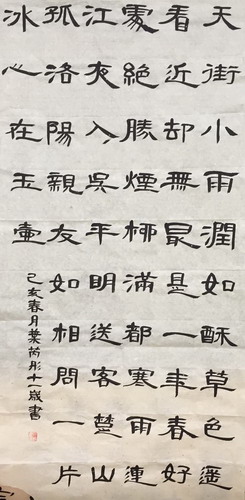 天街小雨潤如酥草色遥
看近却無最是一年春好
處絕勝煙柳滿都寒雨連
江夜入吳平明送客楚山
孤洛陽親友如相問一片
冰心在玉壺
己亥春月葉芮彤十八歲書